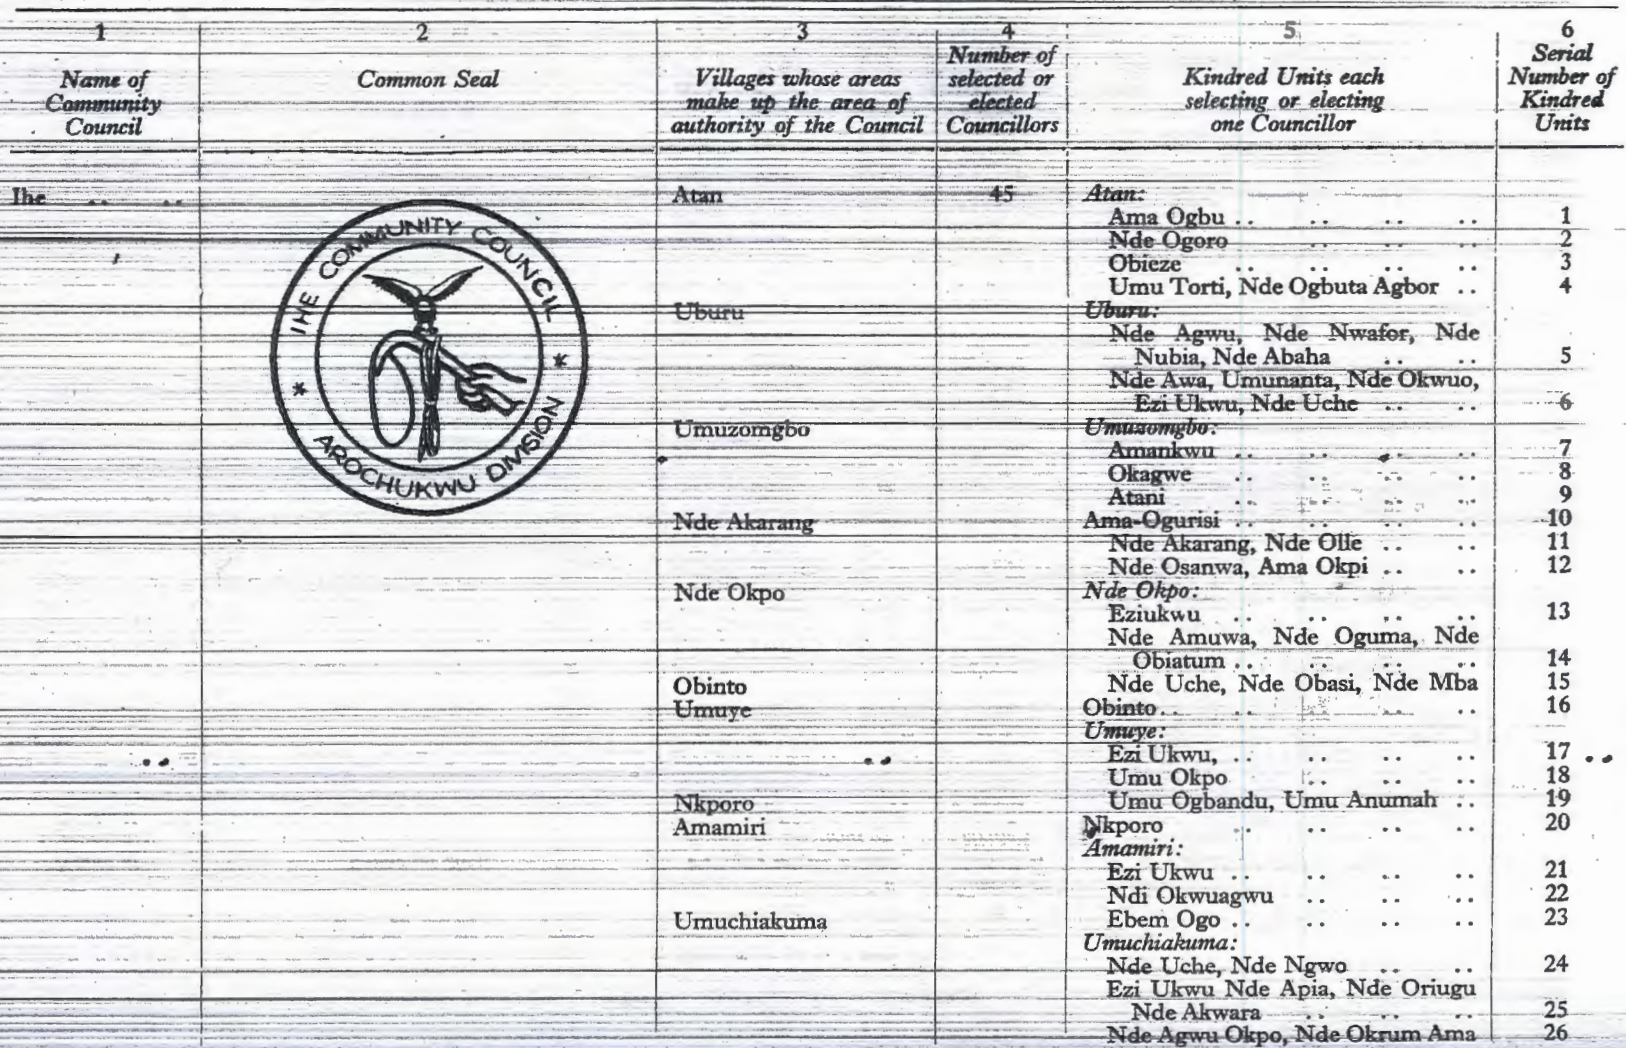 1 2 3 4 5 6
Name of Community Council
Common Seal
Villages whose areas make up the area of authority of the Council
Number of selected or elected Councillors
Kindred Units each selecting or electing one Councillor
Serial Number of Kindred Units
Ihe .. .. Atan 45 Atan:
Ama Ogbu .. .. .. .. 1
Nde Ogoro .. .. .. 2
Obieze .. .. .. .. 3
Umu Torti, Nde Ogbuta Agbor .. 4
Uburu Uburu:
Nde Agwu, Nde Nwafor, Nde
Nubia, Nde Abaha .. .. 5
Nde Awa, Umunanta, Nde Okwuo,
Ezi Ukwu, Nde Uche .. .. 6
Umuzomgbo Umuzomgbo:
Amankwu .. .. .. .. 7
Okagwe .. .. .. .. 8
Atani .. .. .. .. 9
Nde Akarang Ama-Ogurisi .. .. .. .. 10
Nde Akarang, Nde Olle .. .. 11
Nde Osanwa, Ama Okpi .. .. 12
Nde Okpo Nde Okpo:
Eziukwu .. .. .. .. 13
Nde Amuwa, Nde Oguma, Nde
Obiatum .. .. .. .. 14
Obinto Nde Uche, Nde Obasi, Nde Mba 15
Umuye Obinto .. .. .. .. .. 16
Umuye:
Ezi Ukwu, .. .. .. .. 17
Umu Okpo .. .. .. .. 18
Nkporo Umu Ogbandu, Umu Anumah .. 19
Amamiri Nkporo .. .. .. .. 20
Amamiri:
Ezi Ukwu .. .. .. .. 21
Ndi Okwuagwu .. .. .. 22
Umuchiakuma Ebem Ogo .. .. .. .. 23
Umuchiakuma:
Nde Uche, Nde Ngwo .. .. 24
Ezi Ukwu Nde Apia, Nde Oriugu
Nde Akwara .. .. .. 25
Nde Agwu Okpo, Nde Okrum Ama 26
IHE COMMUNITY COUNCIL
* AROCHUKWU DIVISION *